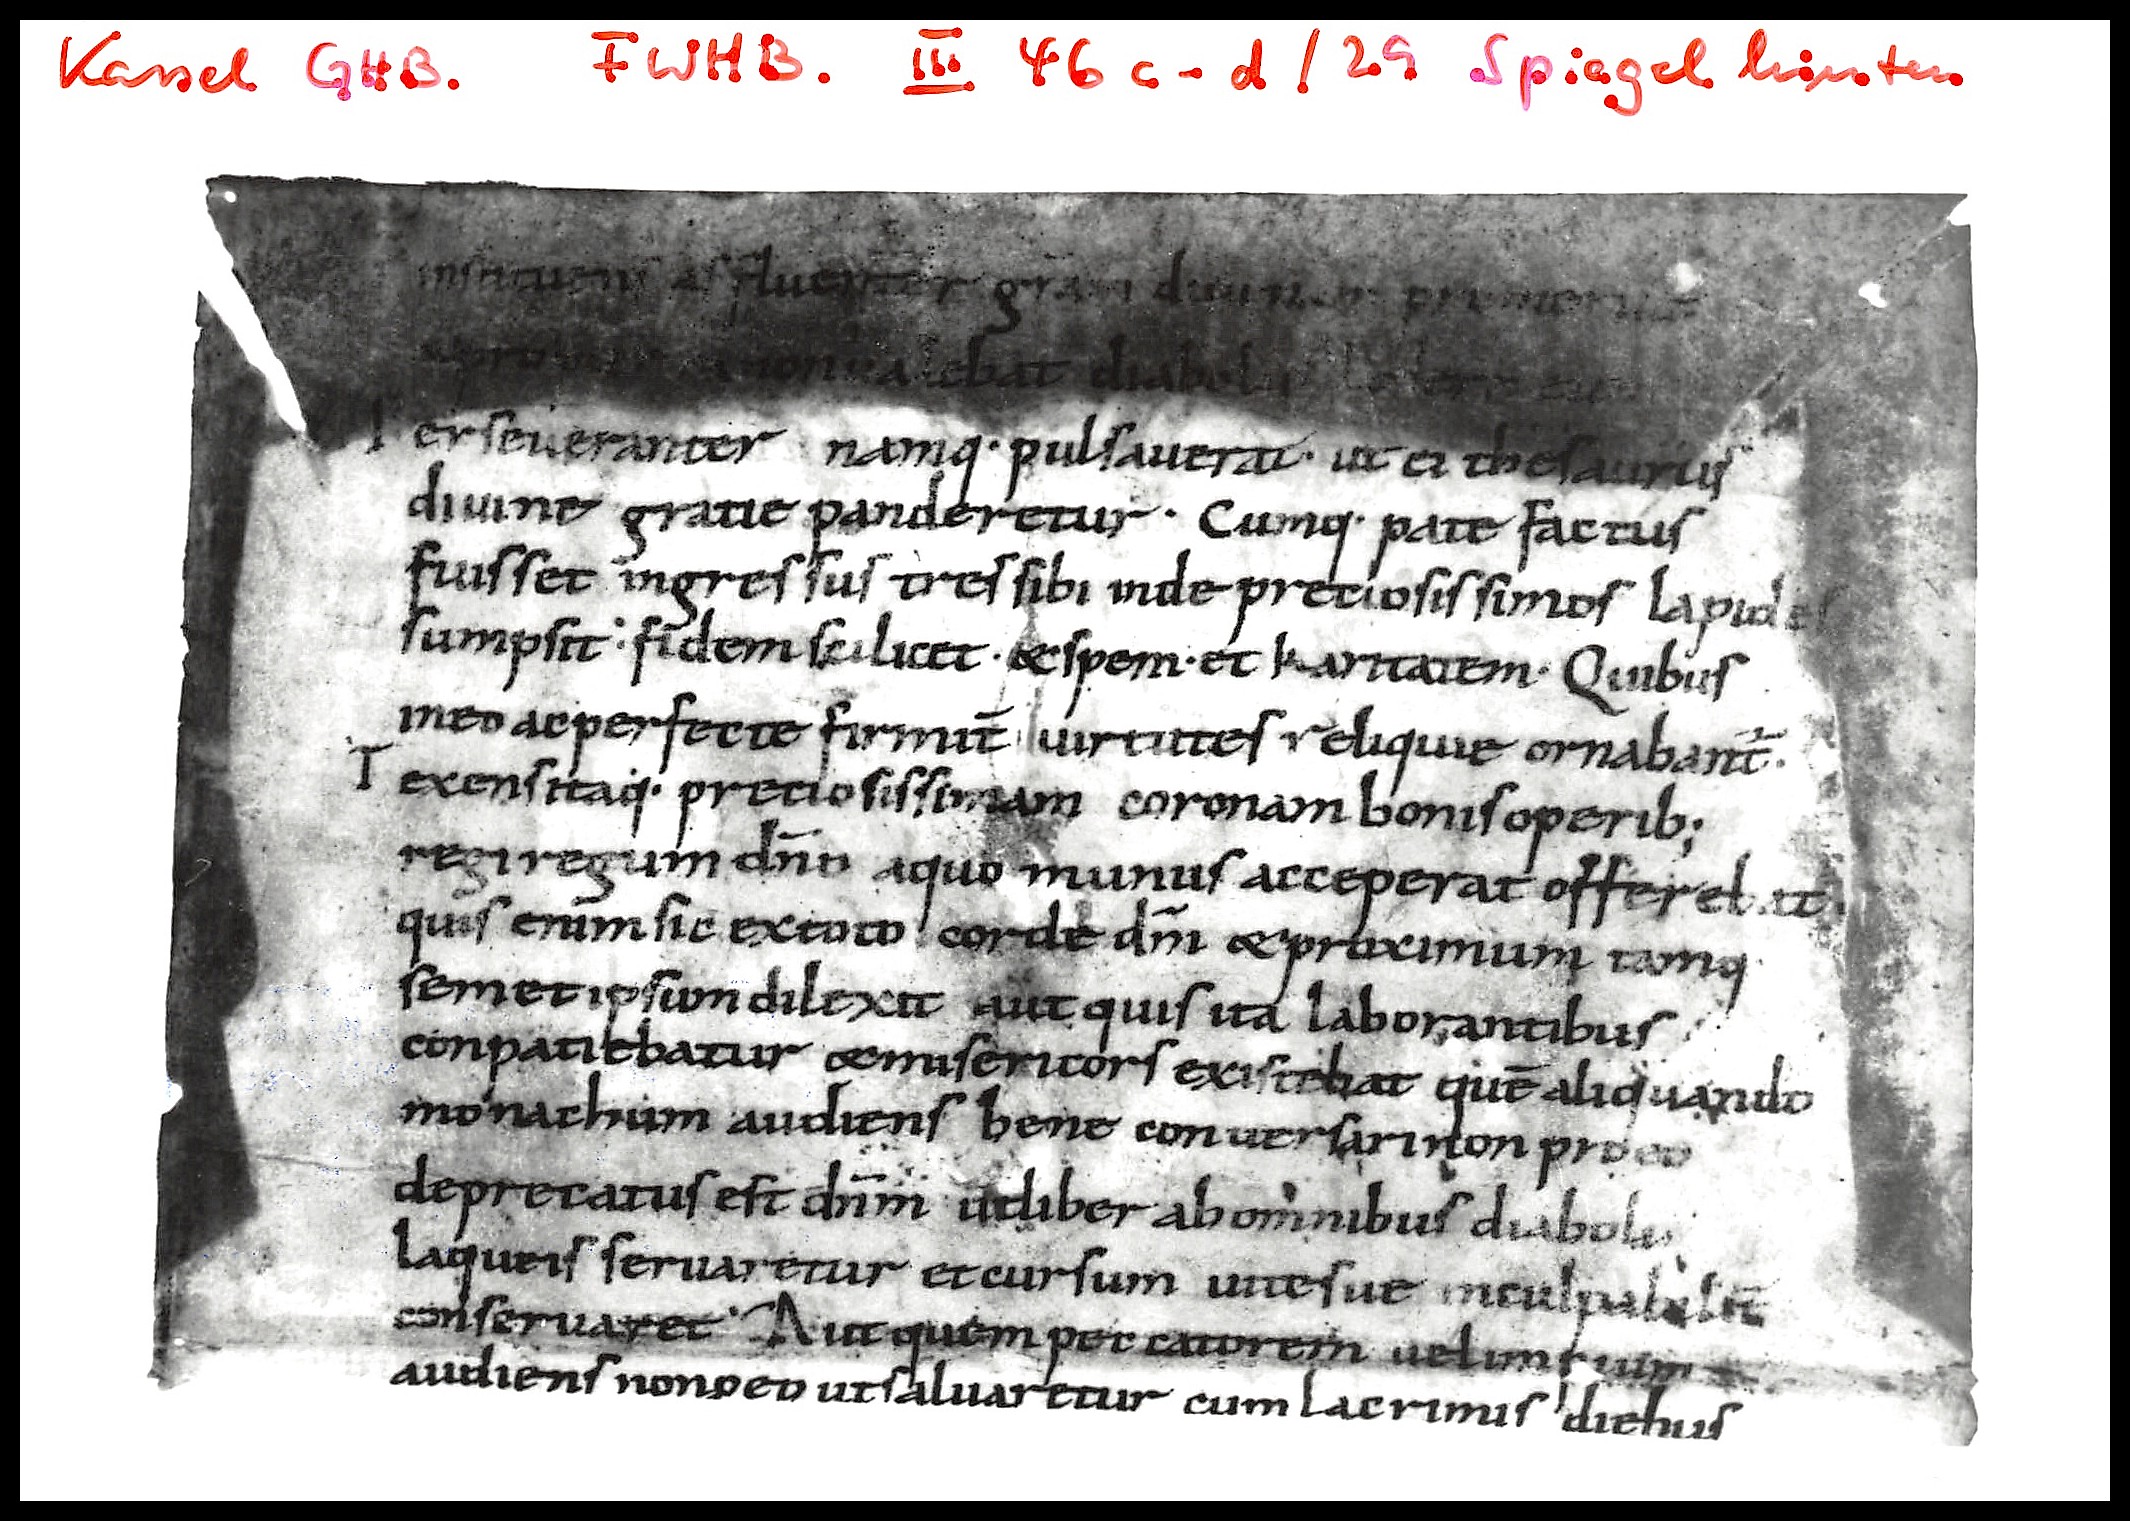 Kassel GHB. FWHB. III 46 c-d/29 Spiegel hinten
instituens affluenter grām divinam promeruit
non valebat diabolus
Perseueranter namq· pulsauerat· ut ei thesaurus
diuine gratie panderetur· Cumq· pate factus
fuisset ingressus tres sibi inde pretiosissimos lapides
sumpsit· fidem scilicet· &spem· et karitatem· Quibus
in eo ac perfecte firmit̄ uirtutes reliquie ornabant̄·
Texens itaq· pretiosissimam coronam bonis operib;
regi regum dn̄o a quo munus acceperat offerebat·
quis enim sic ex toto corde dm̄ &proximum tamq
semet ipsum dilexit aut quis ita laborantibus
conpatiebatur &misericors existebat quē aliquando
monachum audiens bene conuersari non pro eo
deprecatus est dn̄m ut liber ab omnibus diaboli
laqueis seruaretur et cursum uite sue inculpabilit̄
conseruaret· Aut quem peccatorem uel iniurium
audiens non pro eo ut saluaretur cum lacrimis diebus